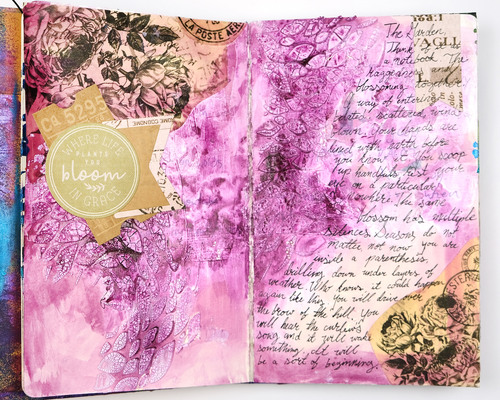 LA POSTE AÉR
Ca 5295
WHERE LIFE
PLANTS YOU
bloom
IN GRACE
The Garden.
Think of it as
a notebook. The
Raggedness and
blossoming together
way of entering
scattered, wind
down. Your hands are
lined with earth before
you know it you scoop
up handfuls, rest your
eye on a particular
elsewhere. The same
blossom has multiple
silences. Seasons do not
matter not now you are
inside a parenthesis,
drilling down under layers of
weather. Who knows it could happen
again like this. You will drive over
the brow of the hill. You
will hear the curlew's
song and it will wake
something. It will
be a sort of beginning.